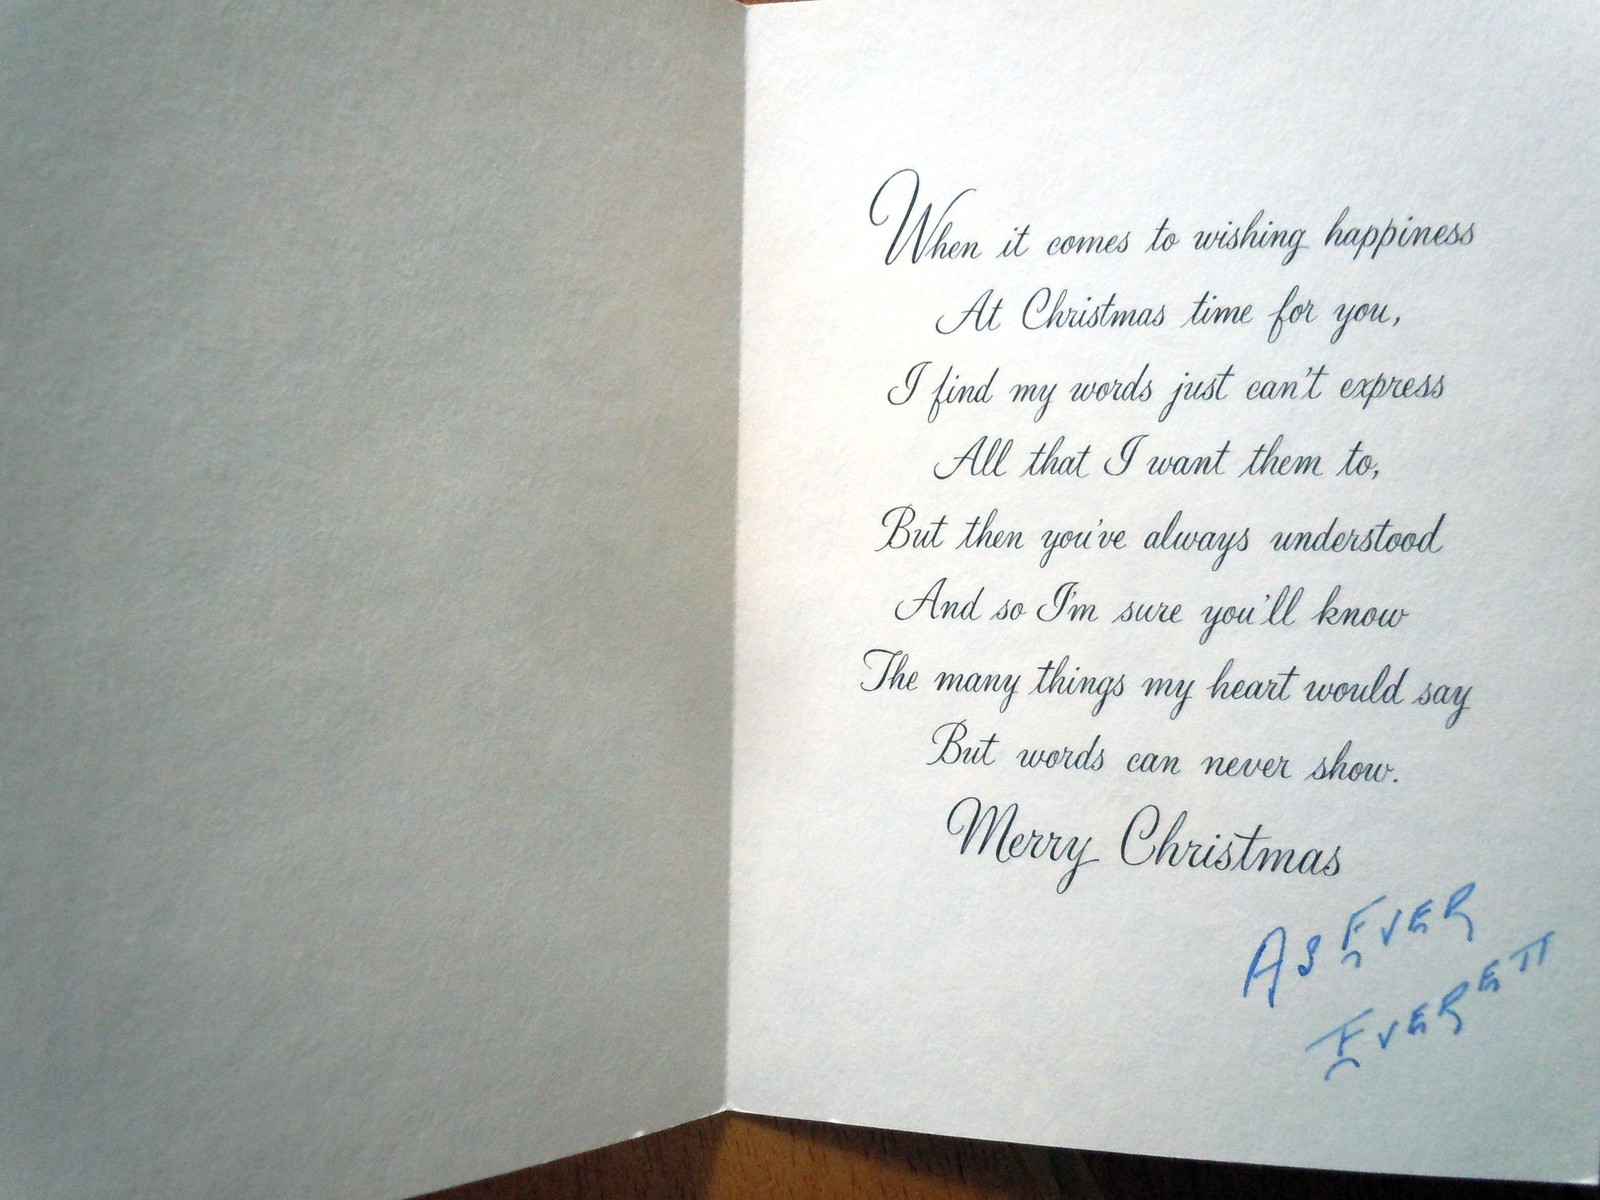 When it comes to wishing happiness
At Christmas time for you,
I find my words just can't express
All that I want them to,
But then you've always understood
And so I'm sure you'll know
The many things my heart would say
But words can never show.
Merry Christmas
AS EVER
EVERETT